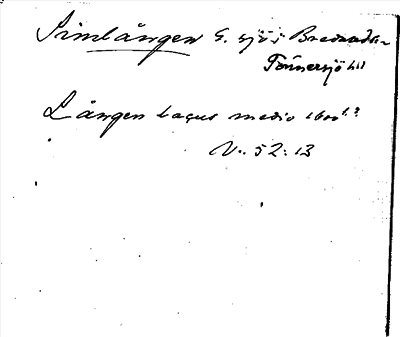 Simlången G. sjö i Breared o
Tönnersjö hd
Lången lacus medio 1600 t.?
N:. 52:13